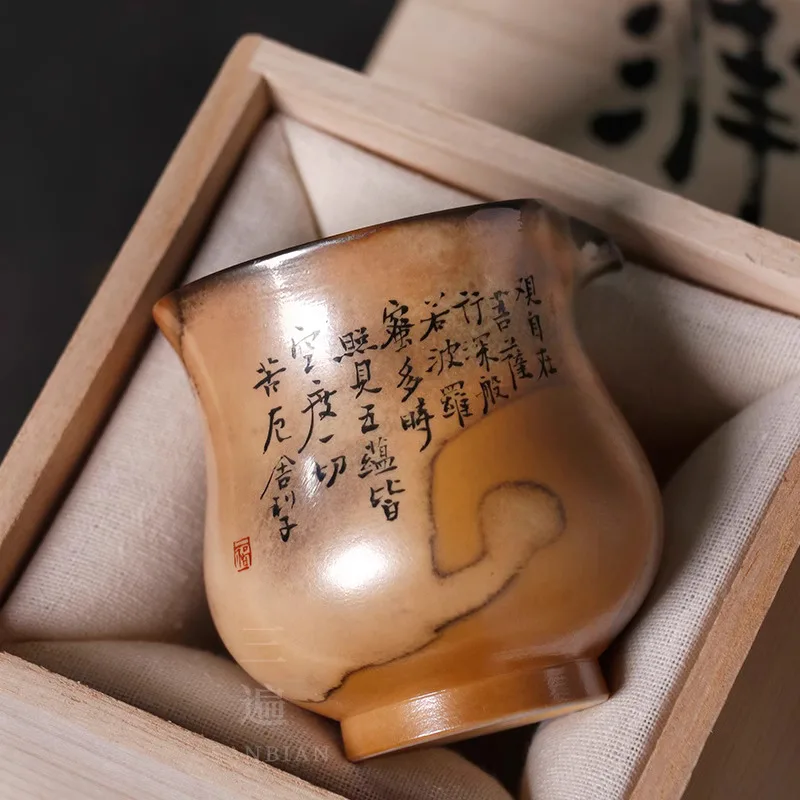 观自在
菩薩
行深般
若波羅
蜜多時
照見五蘊皆
空度一切
苦厄舍利子
福
三遍